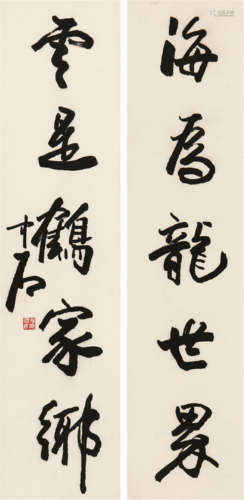 海為龍世界
雲是鶴家鄉
十石